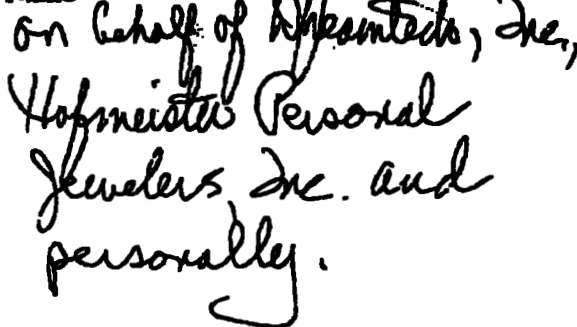 on behalf of Inc.,
Hofmeister Personal
Jewelers, Inc. and
personally.